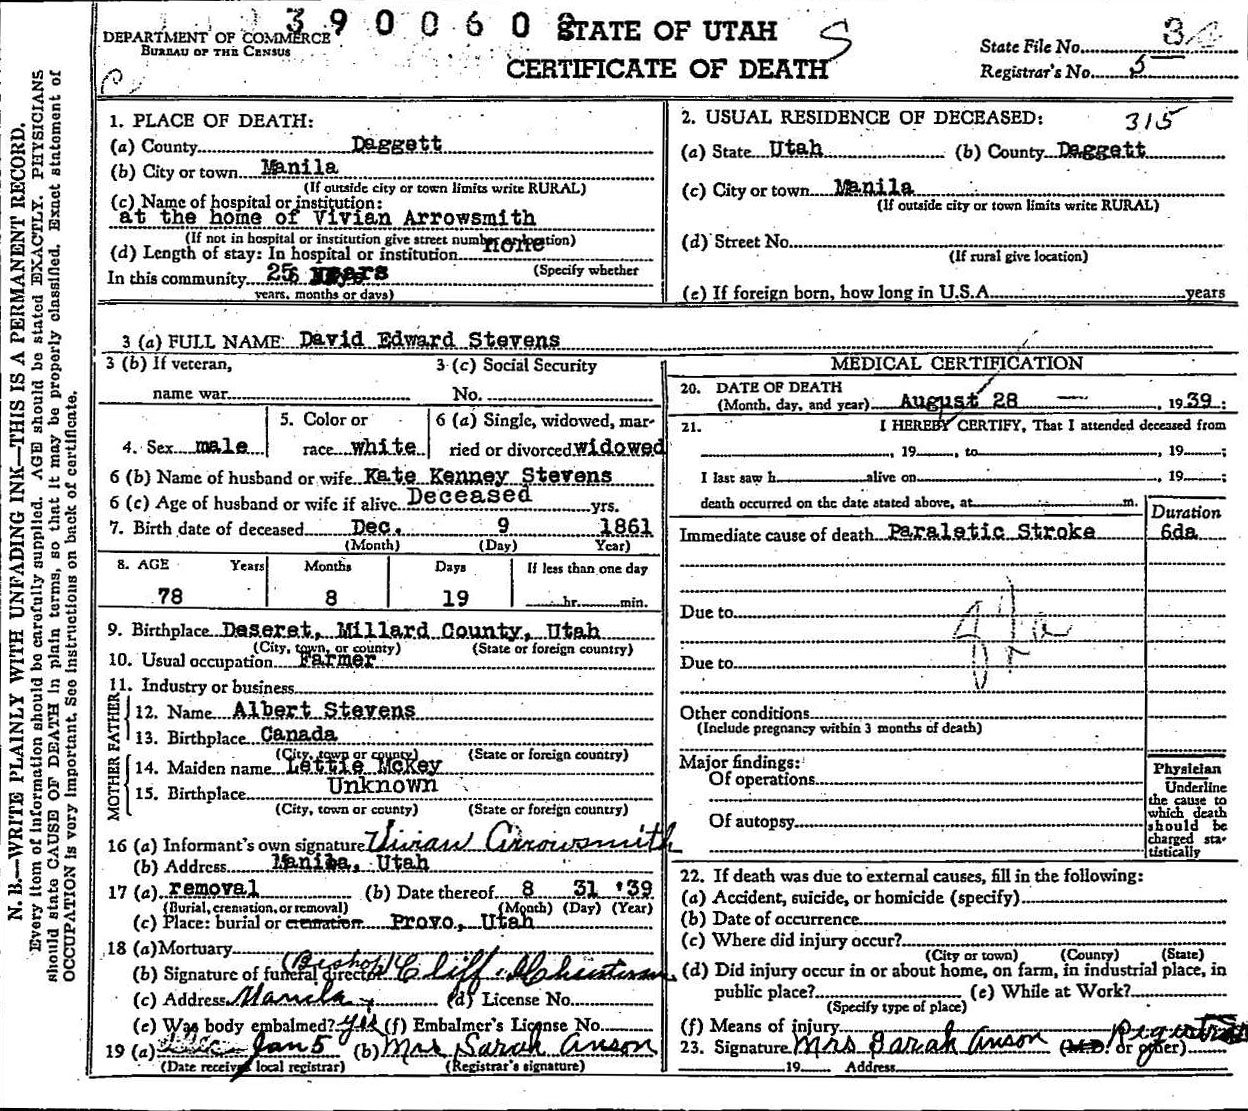 3900608
DEPARTMENT OF COMMERCE
BUREAU OF THE CENSUS
STATE OF UTAH
CERTIFICATE OF DEATH
S
State File No. 3
Registrar's No. 5
N. B.—WRITE PLAINLY WITH UNFADING INK—THIS IS A PERMANENT RECORD.
Every item of information should be carefully supplied. AGE should be stated EXACTLY. PHYSICIANS
should state CAUSE OF DEATH in plain terms, so that it may be properly classified. Exact statement of
OCCUPATION is very important. See instructions on back of certificate.
1. PLACE OF DEATH:
(a) County Daggett
(b) City or town Manila
(If outside city or town limits write RURAL)
(c) Name of hospital or institution:
at the home of Vivian Arrowsmith
(If not in hospital or institution give street number or location)
(d) Length of stay: In hospital or institution none
(Specify whether
In this community years
years, months or days)
2. USUAL RESIDENCE OF DECEASED: 315
(a) State Utah (b) County Daggett
(c) City or town Manila
(If outside city or town limits write RURAL)
(d) Street No.
(If rural give location)
(e) If foreign born, how long in U.S.A. years
3 (a) FULL NAME David Edward Stevens
3 (b) If veteran,
name war
3 (c) Social Security
No.
4. Sex male
5. Color or
race white
6 (a) Single, widowed, mar-
ried or divorced widowed
6 (b) Name of husband or wife Kate Kenney Stevens
6 (c) Age of husband or wife if alive Deceased yrs.
7. Birth date of deceased Dec. 9 1861
(Month) (Day) Year)
8. AGE Years Months Days If less than one day
78 8 19 hr. min.
9. Birthplace Deseret, Millard County, Utah
(City, town, or county) (State or foreign country)
10. Usual occupation Farmer
11. Industry or business
FATHER
12. Name Albert Stevens
13. Birthplace Canada
(City, town or county) (State or foreign country)
MOTHER
14. Maiden name Lettie McKey
15. Birthplace Unknown
(City, town or county) (State or foreign country)
16 (a) Informant's own signature Vivian Arrowsmith
(b) Address Manila, Utah
17 (a) removal (b) Date thereof 8 31 '39
(Burial, cremation, or removal) (Month) (Day) (Year)
(c) Place: burial or cremation Provo, Utah
18 (a) Mortuary
(b) Signature of funeral director (Bishop) Cliff
(c) Address Manila (d) License No.
(e) Was body embalmed? yes (f) Embalmer's License No.
19 (a) Jan 5 (b) Mrs Sarah Anson
(Date received local registrar) (Registrar's signature)
MEDICAL CERTIFICATION
20. DATE OF DEATH
(Month, day, and year) August 28 — , 1939;
21. I HEREBY CERTIFY, That I attended deceased from
, 19 , to , 19 ;
I last saw h alive on , 19 ;
death occurred on the date stated above, at m.
Duration
Immediate cause of death Paraletic Stroke 6da
Due to
Due to
Other conditions
(Include pregnancy within 3 months of death)
Major findings:
Of operations
Of autopsy
Physician
Underline
the cause to
which death
should be
charged sta-
tistically
22. If death was due to external causes, fill in the following:
(a) Accident, suicide, or homicide (specify)
(b) Date of occurrence
(c) Where did injury occur?
(City or town) (County) (State)
(d) Did injury occur in or about home, on farm, in industrial place, in
public place? (e) While at Work?
(Specify type of place)
(f) Means of injury
23. Signature Mrs Sarah Anson (M.D. or other) Registrar
19 Address